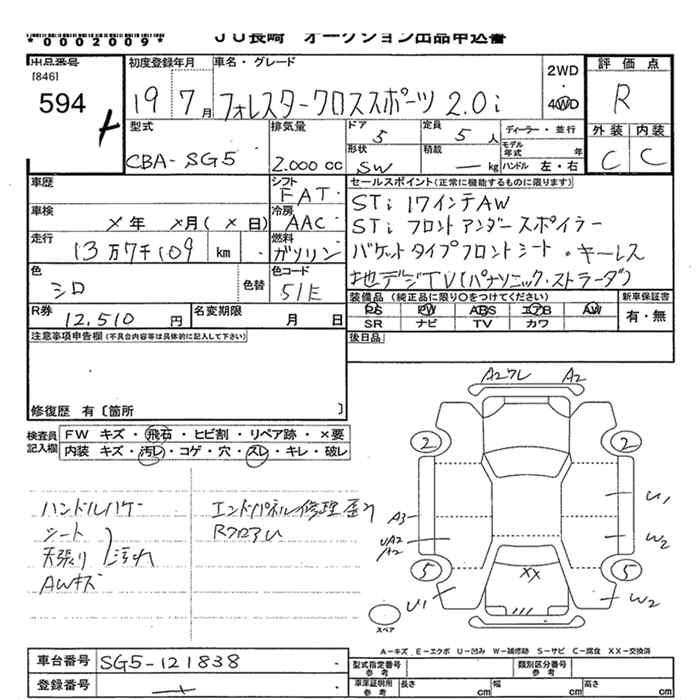 *0002009* JU長崎 オークション出品申込書
出品番号 初度登録年月 車名・グレード 2WD 評価点
[846]
594 19年 7月 フォレスタークロススポーツ 2.0i 4WD R
型式 排気量 ドア 定員 ディーラー・並行 外装 内装
CBA-SG5 2.000cc 5 5人 モデル年式 年 C C
形状 積載
SW — kg ハンドル 左・右
車歴 シフト セールスポイント(正常に機能するものに限ります)
FAT STi 17インチAW
車検 ×年 ×月(×日) 冷房 AAC STi フロントアンダースポイラー
走行 13万7千109 km 燃料 ガソリン バケットタイプフロントシート・キーレス
色 シロ 色替 色コード 51E 地デジTV(パナソニック・ストラーダ)
装備品(純正品に限り○をつけてください) 新車保証書
R券 12,510円 名変期限 月 日 PS PW ABS エアB AW 有・無
SR ナビ TV カワ
注意事項申告欄(不具合内容等は具体的に記入して下さい) 後日品
修復歴 有〔箇所 〕
検査員記入欄 FW キズ・飛石・ヒビ割・リペア跡・×要
内装 キズ・汚レ・コゲ・穴・スレ・キレ・破レ
ハンドルハゲ エンドパネル修理歪り
シート RフロアU
天張り 汚れ
AWキズ
A2ワレ A2
2 2
A3 U1
UA2 W2
A2
5 XX 5
U1 W2
スペア
A-キズ、E-エクボ U-凹み W-補修跡 S-サビ C-腐食 XX-交換済
車台番号 SG5-121838 型式指定番号 参考 類別区分番号 参考
登録番号 車庫証明用 参考 長さ cm 幅 cm 高さ cm